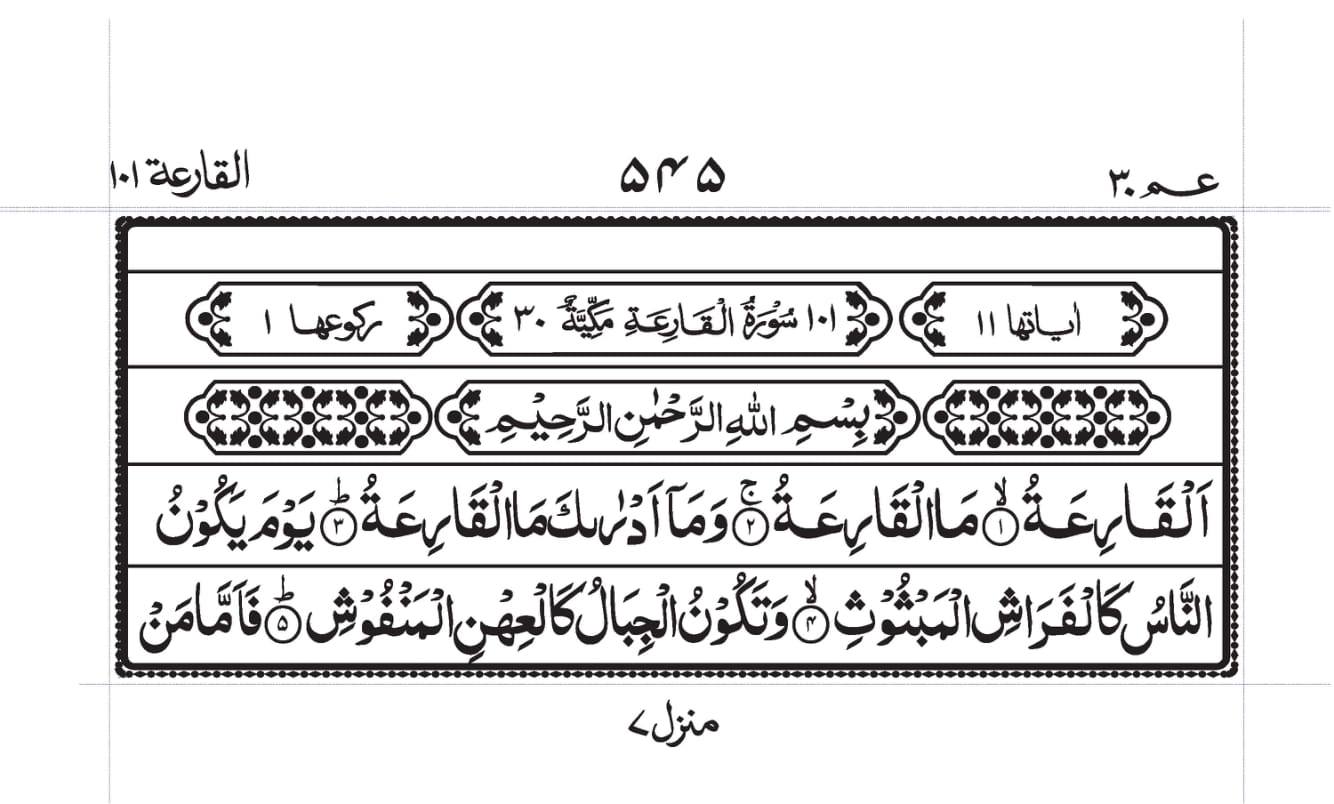 عم ۳۰ ۵۴۵ القارعة ۱۰۱
اٰیاتها ۱۱ ۱۰۱ سُوْرَةُ الْقَارِعَةِ مَكِّيَّةٌ ۳۰ رکوعها ۱
بِسْمِ اللهِ الرَّحْمٰنِ الرَّحِيْمِ
اَلْقَارِعَةُ ۙ﴿۱﴾ مَا الْقَارِعَةُ ۚ﴿۲﴾ وَمَاۤ اَدْرٰىكَ مَا الْقَارِعَةُ ؕ﴿۳﴾ يَوْمَ يَكُوْنُ
النَّاسُ كَالْفَرَاشِ الْمَبْثُوْثِ ۙ﴿۴﴾ وَتَكُوْنُ الْجِبَالُ كَالْعِهْنِ الْمَنْفُوْشِ ؕ﴿۵﴾ فَاَمَّا مَنْ
منزل ۷